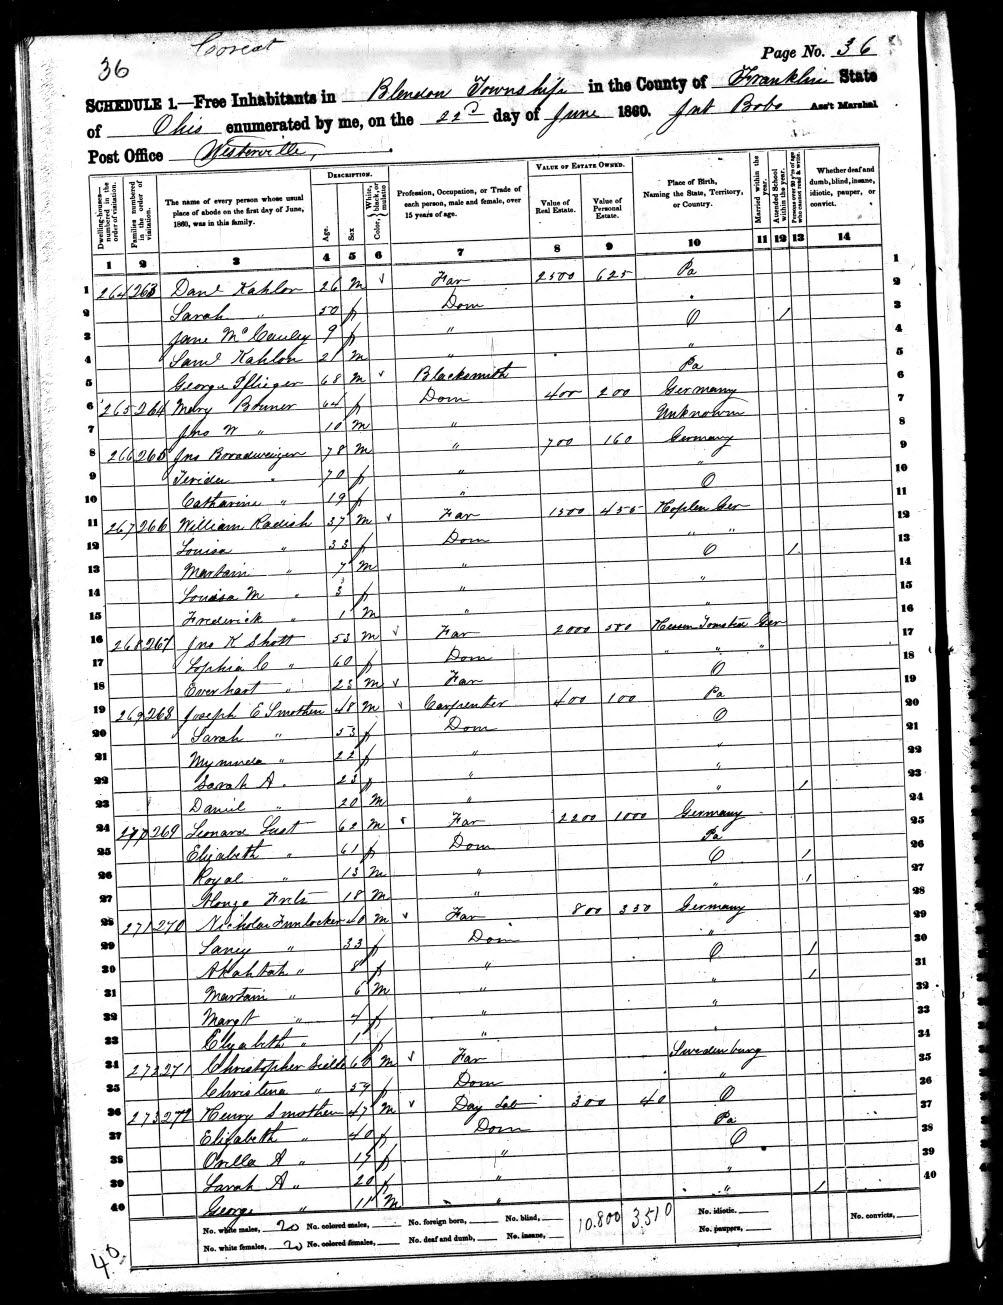 36
Page No. 36
SCHEDULE 1.—Free Inhabitants in Blendon Township in the County of Franklin State
of Ohio enumerated by me, on the 22d day of June 1860. Jnt Bobo Ass't Marshal
Post Office Westerville,
Dwelling-houses—numbered in the order of visitation.
Families numbered in the order of visitation.
The name of every person whose usual place of abode on the first day of June, 1860, was in this family.
DESCRIPTION.
Age.
Sex
Color, White, black, or mulatto
Profession, Occupation, or Trade of each person, male and female, over 15 years of age.
VALUE OF ESTATE OWNED.
Value of Real Estate.
Value of Personal Estate.
Place of Birth, Naming the State, Territory, or Country.
Married within the year.
Attended School within the year.
Persons over 20 y'rs of age who cannot read & write.
Whether deaf and dumb, blind, insane, idiotic, pauper, or convict.
1 2 3 4 5 6 7 8 9 10 11 12 13 14
1 264 263 Danl Kahlor 26 M Far 2500 625 Pa
2 Sarah " 50 f Dom "
3 Jane McCauley 9 f " O 1
4 Saml Kahlon 2 M " "
5 George Pflieger 68 M Blacksmith Pa
6 265 264 Mary Bruner 64 f Dom 400 200 Germany
7 Jno W " 10 M " Unknown
8 266 265 Jno 78 M " 700 160 Germany
9 " 70 f " "
10 Catharine " 19 f " O
11 267 266 William Radish 37 M Far 1500 455 Ger
12 Louisa " 33 f Dom " "
13 Martain " 7 M " O 1
14 Louisa M " 3 f " "
15 Frederick " 1 M " "
16 268 267 Jno K Shott 53 M Far 2000 580 Ger
17 Sophia C " 60 f Dom " " "
18 Everhart " 23 M Far O
19 269 268 Joseph E Smothers 48 M Carpenter 400 100 Pa
20 Sarah " 53 f Dom O
21 " 22 f " "
22 Sarah A " 23 f " "
23 Daniel " 20 M " " 1
24 270 269 Leonard Lust 62 M Far 2200 1000 Germany
25 Elizabeth " 61 f Dom Pa
26 Royal " 13 M " O 1
27 Alonzo Frets 18 M " " 1
28 271 270 Nicholas Funlocker 40 M Far 800 350 Germany
29 " 33 f Dom "
30 " 8 f " O 1
31 Martain " 6 M " " 1
32 Margt " 4 f " "
33 Elizabeth " 1 f " "
34 272 271 Christopher 60 M Far Swedenburg
35 Christena " 59 f Dom "
36 273 272 Henry Smothers 47 M Day Lab 300 40 O
37 Elizabeth " 40 f Dom Pa
38 Orilla A " 17 f " O
39 Sarah A " 20 f " "
40 George " 11 M " " 1
No. white males, 20 No. colored males, No. foreign born, No. blind, 10.800 3,510 No. idiotic, No. convicts,
No. white females, 20 No. colored females, No. deaf and dumb, No. insane, No. paupers,
40